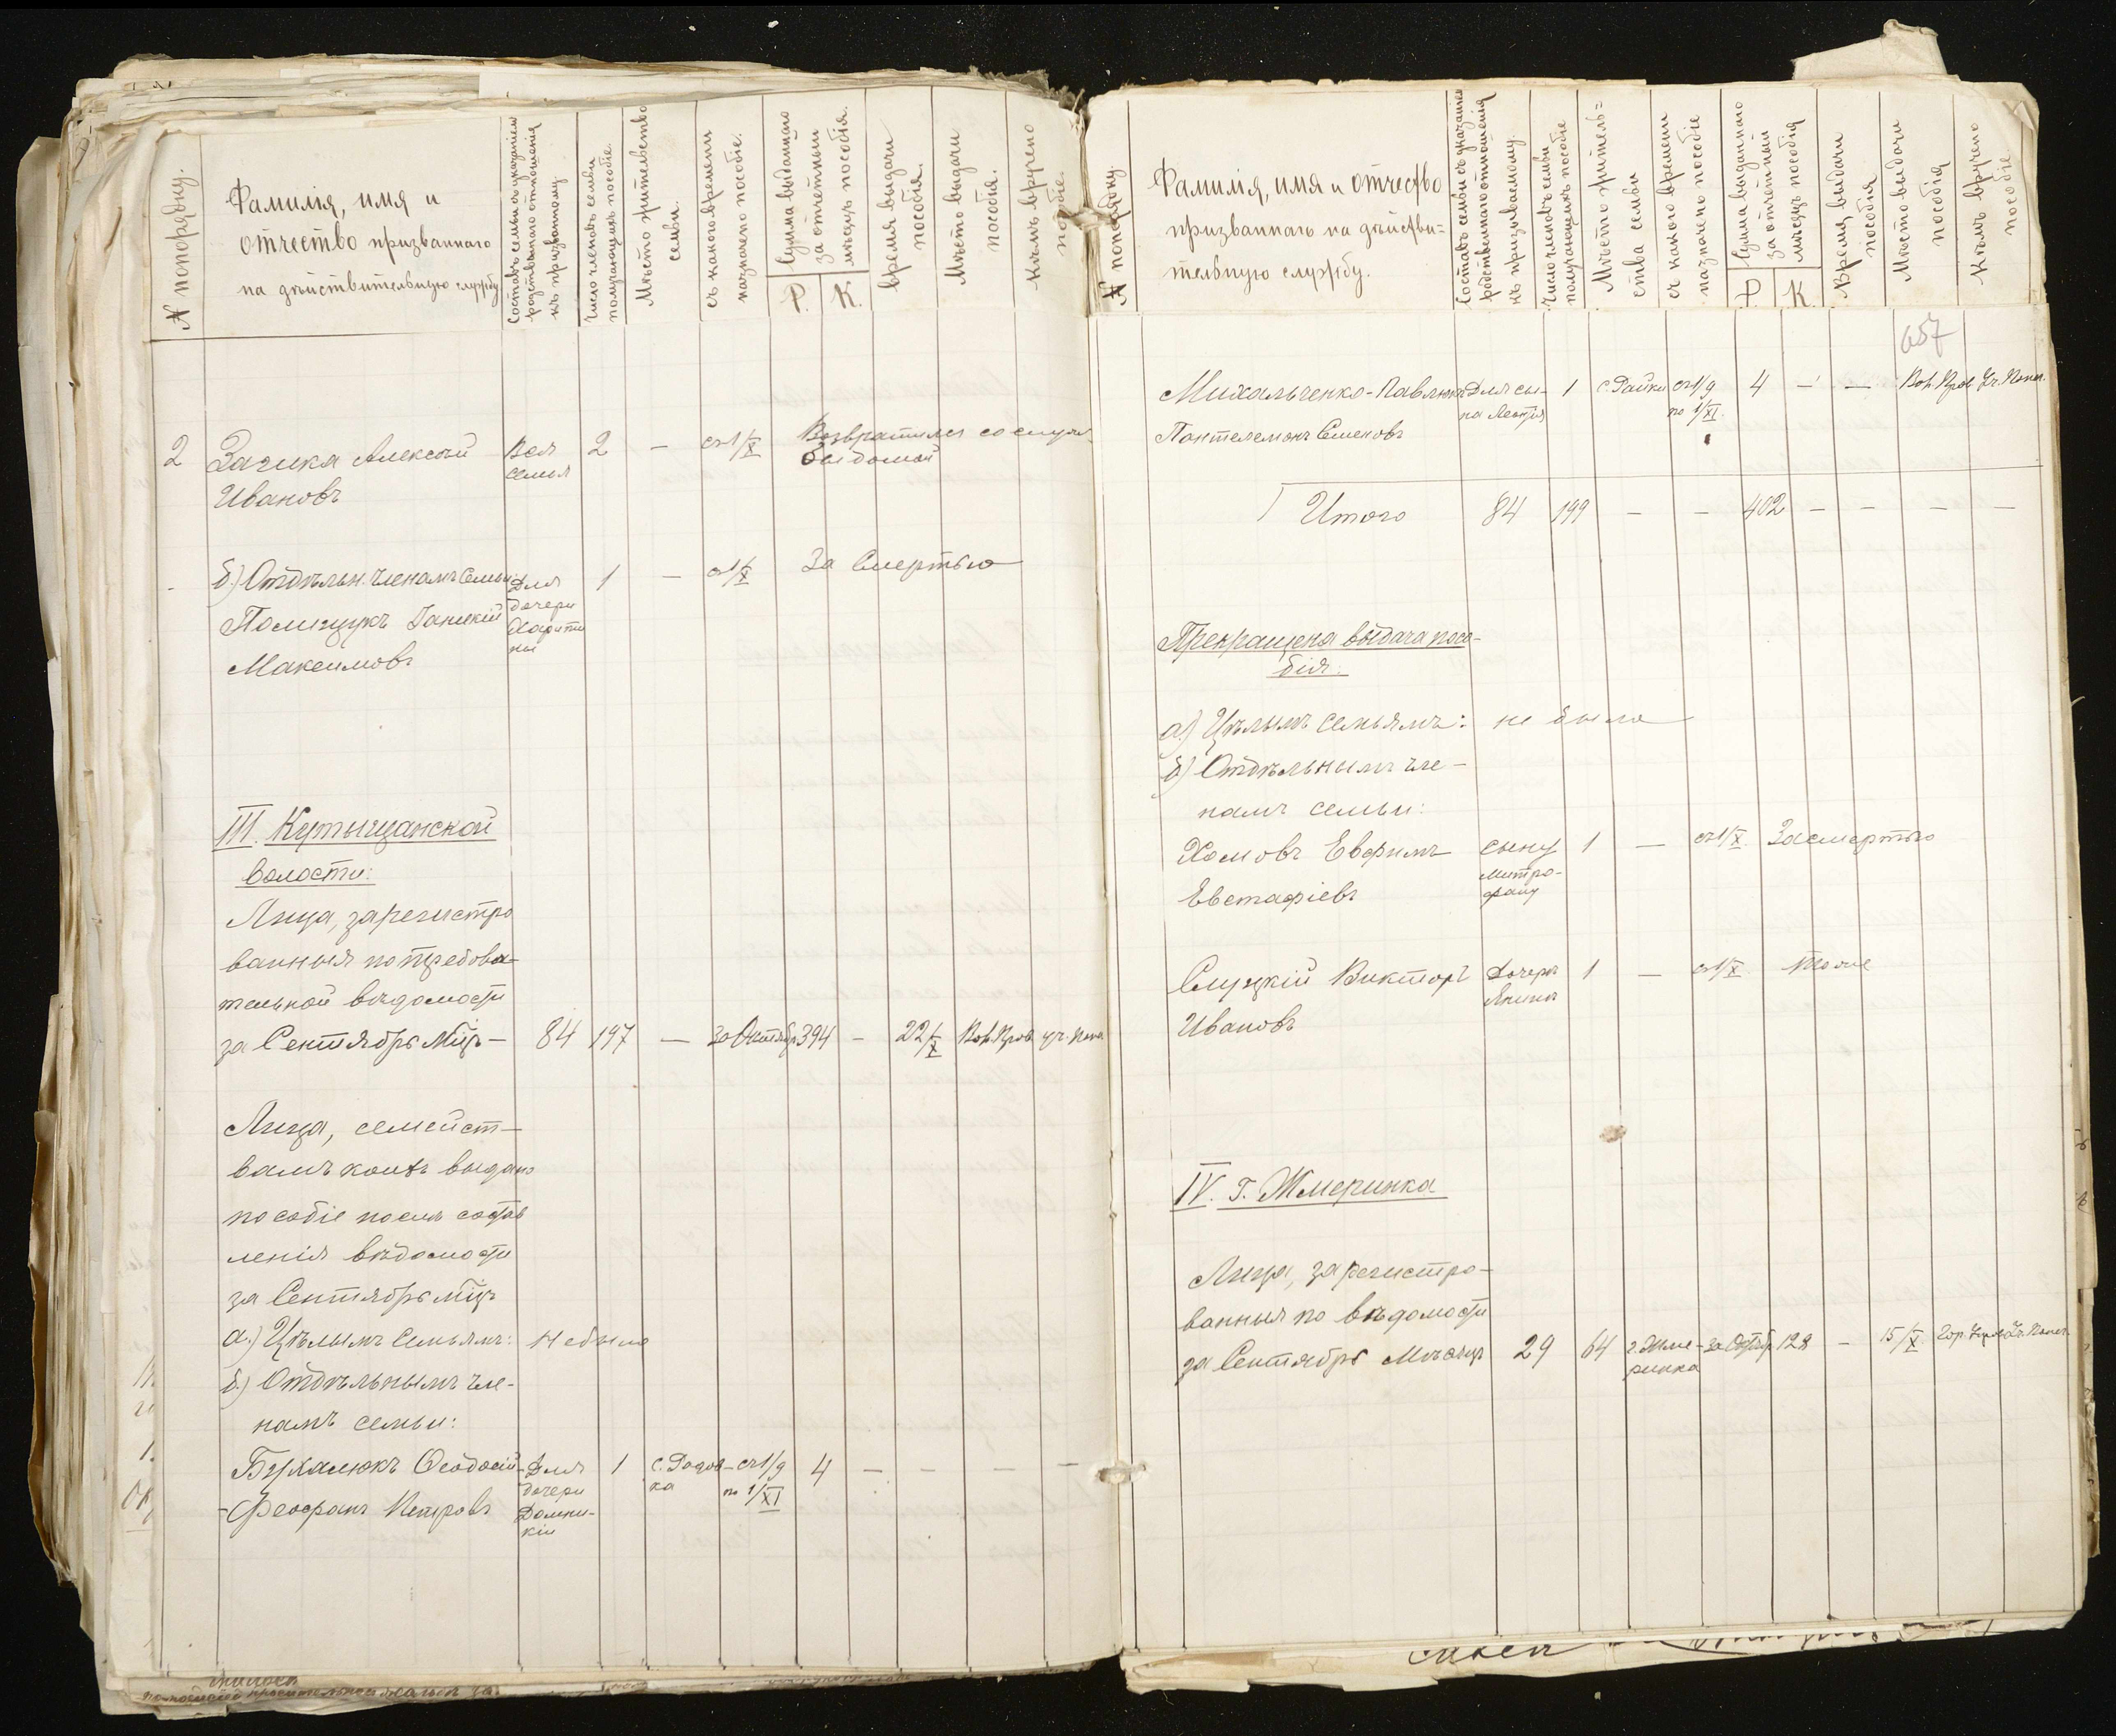 № по порядку.
Фамилія, имя и
отчество призваннаго
на дѣйствительную службу
Составъ семьи съ указаніем
родственнаго отношенія
къ призванному.
Число членовъ семьи
получающихъ пособіе.
Мѣсто жительства
семьи.
съ какого времени
назначено пособіе.
Сумма выданнаго
за отчетный
мѣсяцъ пособія.
Р.
К.
время выдачи
пособія.
Мѣсто выдачи
пособія.
Кѣмъ вручено
пособіе.
2 Заика Алексѣй Вся 2 — съ 1/X Возвратился со служ
семья бы домой
Ивановъ
б.) Отдѣльн. членамъ семьи: Для 1 — съ 1/X За Смертью
дочери
Полищукъ
Максимовъ
III. Кутыщанской
волости:
Лица, зарегистро
ванныя по требова-
тельной вѣдомости
за Сентябрь Мѣц — 84 197 — за Октябр 394 — 22/X Вол. Прав уч. Попе.
Лица, семейст-
вамъ коихъ выдано
пособіе послѣ состав
ленія вѣдомости
за Сентябрь мѣцъ
а.) Цѣлымъ семьямъ: Не было
б.) Отдѣльнымъ чле-
намъ семьи:
Бухалюкъ Ѳеодосій- Для 1 с. Радов- съ 1/9 4 — — — —
дочери ка по 1/XI
-Феофанъ Петровъ Домни-
кіи
№ по порядку.
Фамилія, имя и отчество
призваннаго на дѣйстви=
тельную службу.
Составъ семьи съ указаніем
родственнаго отношенія
къ призываемому.
Число членовъ семьи
получающихъ пособіе
Мѣсто житель=
ства семьи
съ какого времени
назначено пособіе
Сумма выданнаго
за отчетный
мѣсяцъ пособія
Р.
К.
Время выдачи
пособія
Мѣсто выдачи
пособія
Кѣмъ вручено
пособіе
657
Михальченко-Павлюкъ Для сы- 1 с. Райки съ 1/9 4 — — Вол. Прав Уч. Попеч.
на Леонтія по 1/XI.
Пантелемонъ Семеновъ
Итого 84 199 — — 402 — — — —
Прекращена выдача посо-
бія:
а.) Цѣлымъ семьямъ: не было
б) Отдѣльнымъ чле-
намъ семьи:
Хомовъ Евфимъ сыну 1 — съ 1/X За смертью
Митро-
фану
Евстафіевъ
Слуцкій Викторъ Дочери 1 — съ 1/X тоже
Ивановъ
IV. Г. Жмеринка
Лица, зарегистро-
ванныя по вѣдомости
за Сентябрь Мѣсяцъ 29 64 г. Жме- за Октяб. 128 — 15/X. Гор. Упр. Уч. Попеч.
ринка